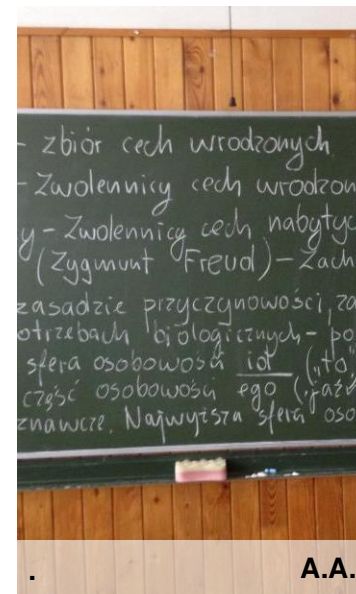 - zbiór cech wrodzonych
- Zwolennicy cech wrodzon
y - Zwolennicy cech nabytyc
(Zygmunt Freud) - Zach
zasadzie przyczynowości, za
otrzebach biologicznych - po
sfera osobowości id ("to"
część osobowości ego ("jaźń
znawcze. Najwyższa sfera oso
. A.A.